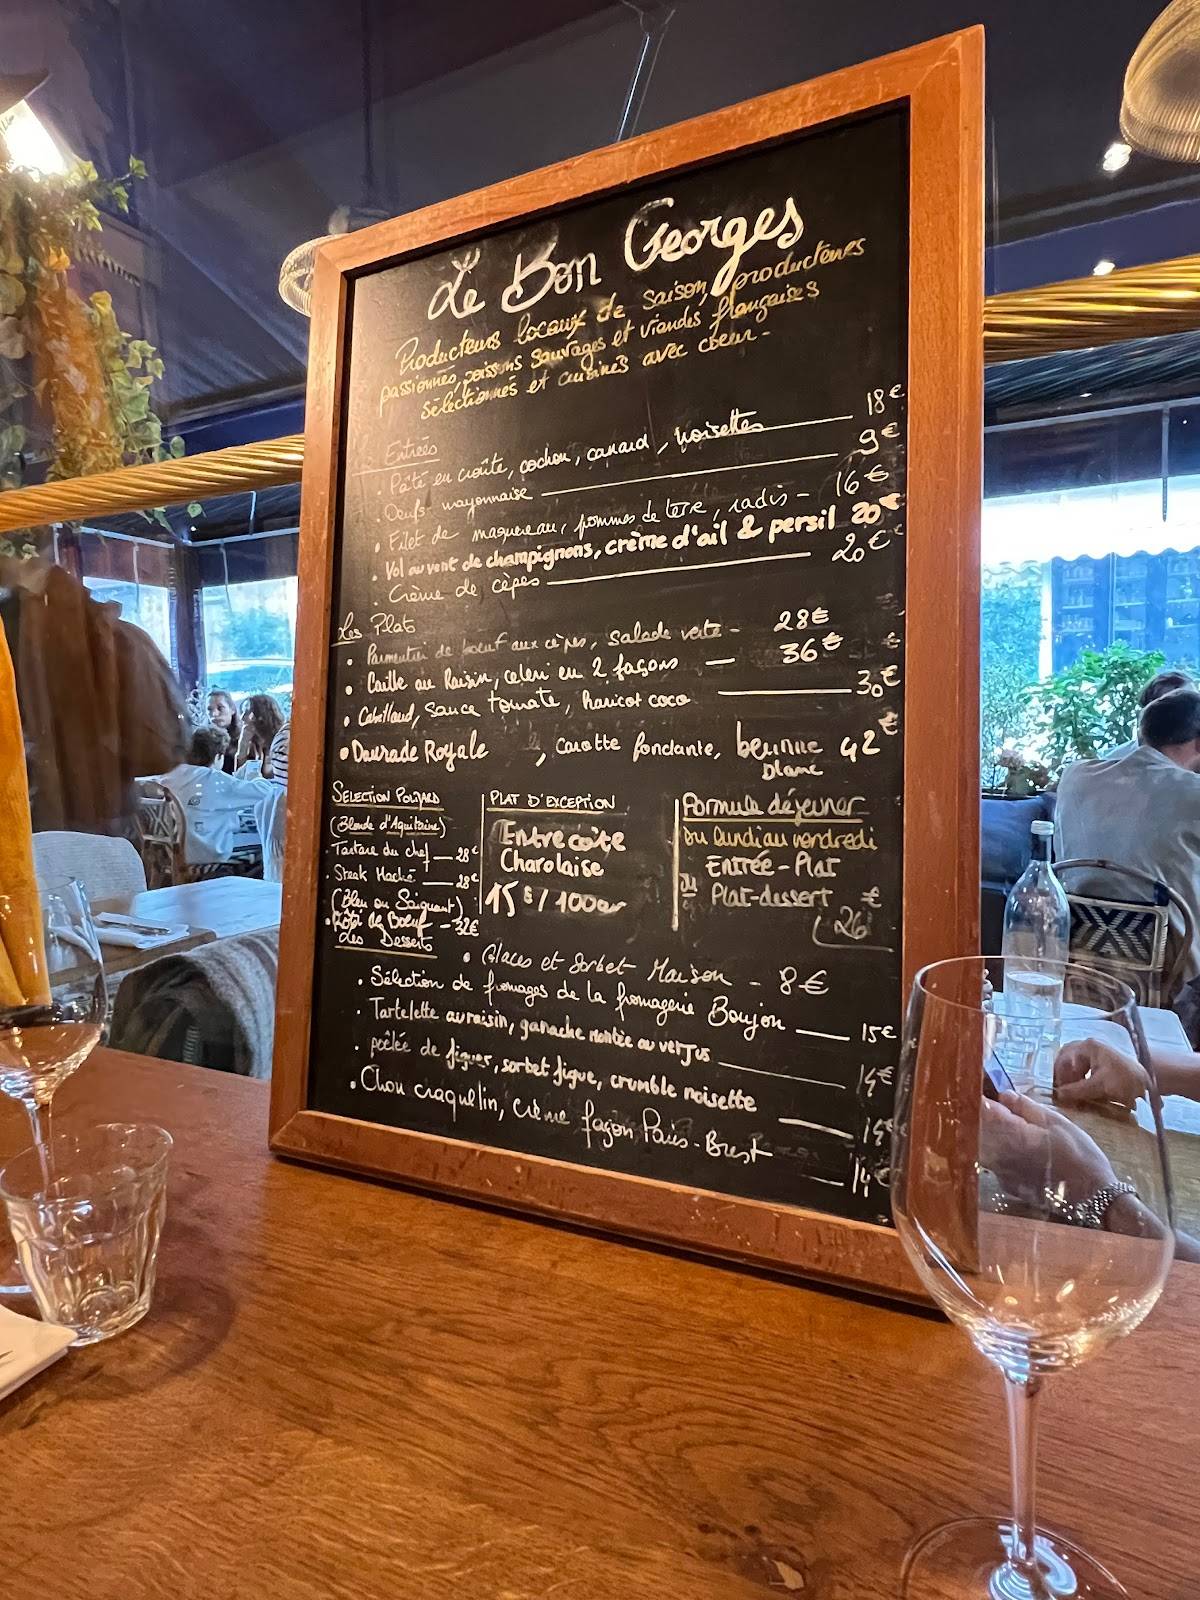 Le Bon Georges
Producteurs locaux de saison, producteurs
passionnés, poissons sauvages et viandes françaises
sélectionnés et cuisinés avec coeur-
Entrées
• Pâté en croûte, cochon, canard, noisettes 18€
• Oeufs mayonnaise 9€
• Filet de maquereau, pommes de terre, radis - 16€
• Vol au vent de champignons, crème d'ail & persil 20€
• Crème de cèpes 20€
Les Plats
• Parmentier de boeuf aux cèpes, salade verte - 28€
• Caille au Raisin, celeri en 2 façons — 36€
• Cabillaud, sauce tomate, haricot coco 30€
• Daurade Royale , carotte fondante, beurre 42€
blanc
SELECTION POLMARD
(Blonde d'Aquitaine)
• Tartare du chef — 28€
• Steak Haché — 28€
(Bleu ou Saignant)
• Rôti de Boeuf - 32€
PLAT D'EXCEPTION
Entrecôte
Charolaise
15€/100gr
Formule déjeuner
Du lundi au vendredi
ENTRÉE - PLAT
ou
Plat-dessert €
26
Les Desserts
• Glaces et Sorbet Maison - 8€
• Sélection de fromages de la fromagerie Boujon — 15€
• Tartelette au raisin, ganache montée au verjus 14€
• poêlée de figues, sorbet figue, crumble noisette 14€
• Chou craquelin, crème façon Paris-Brest 14€